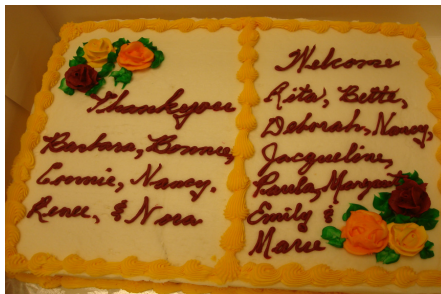 Thankyou
Barbara, Bonnie,
Connie, Nancy,
Renee, & Nora
Welcome
Rita, Bette,
Deborah, Nancy,
Jacqueline,
Paula, Margaret
Emily &
Marie